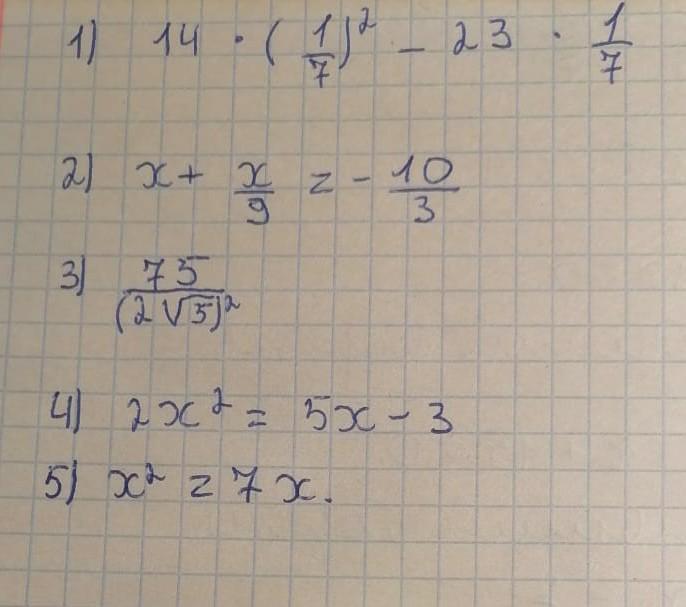 1) 14 · (1/7)² − 23 · 1/7
2) x + x/9 = − 10/3
3) 75/(2√5)²
4) 2x² = 5x − 3
5) x² = 7x.